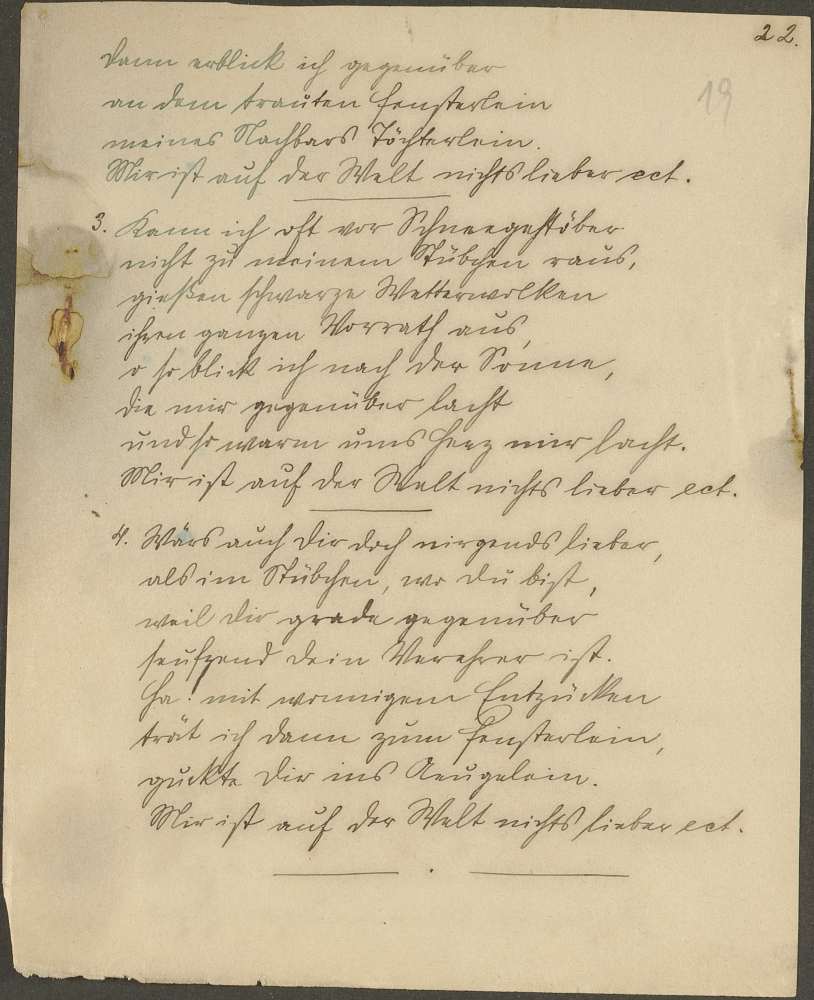 22.
19
dann erblick ich gegenüber
an dem trauten Fensterlein
meines Nachbars Töchterlein.
Mir ist auf der Welt nichts lieber ect.
3. Kann ich oft vor Schneegestöber
nicht zu meinem Stübchen raus,
gießen schwarze Wetterwolken
ihren ganzen Vorrath aus,
o so blick ich nach der Sonne,
die mir gegenüber lacht
und so warm ums Herz mir lacht.
Mir ist auf der Welt nichts lieber ect.
4. Wärs auch dir doch nirgends lieber,
als im Stübchen, wo du bist,
weil dir grade gegenüber
seufzend dein Verehrer ist.
Ha! mit wonnigem Entzücken
trät ich dann zum Fensterlein,
guckte dir ins Aeugelein.
Mir ist auf der Welt nichts lieber ect.